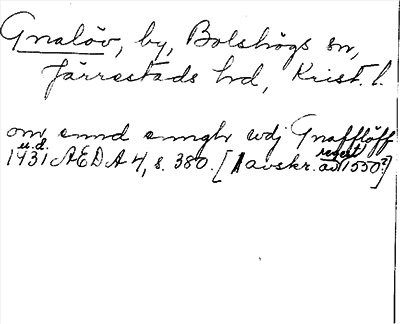 Gnalöv, by, Bolshögs sn,
Järrestads hd, Krist. l.
om sund sunghr wdj Gnafflöff
u.d.
1431 ÆDA 4, s. 380. [avskr. av regest 1550?]